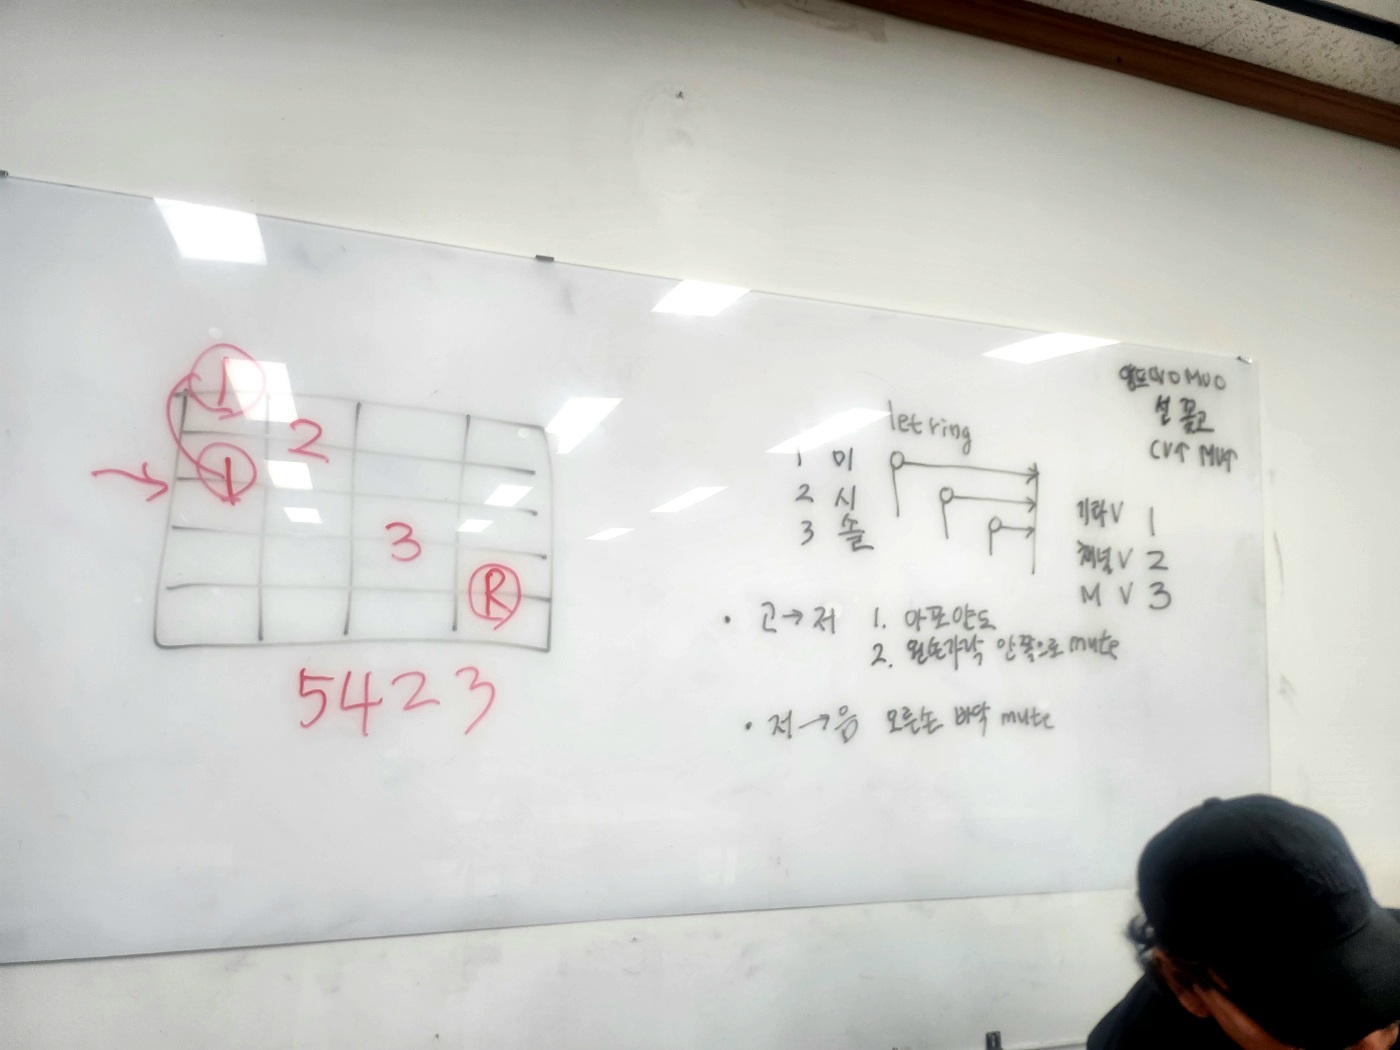 1
2
1
3
R
5423
let ring
1 미
2 시
3 솔
앰프 CV0 MV0
선 꽂고
CV↑ MV↑
기타V 1
채널V 2
M V 3
• 고→저 1. 아포얀도
2. 왼손가락 안쪽으로 mute
• 저→음 오른손 바닥 mute